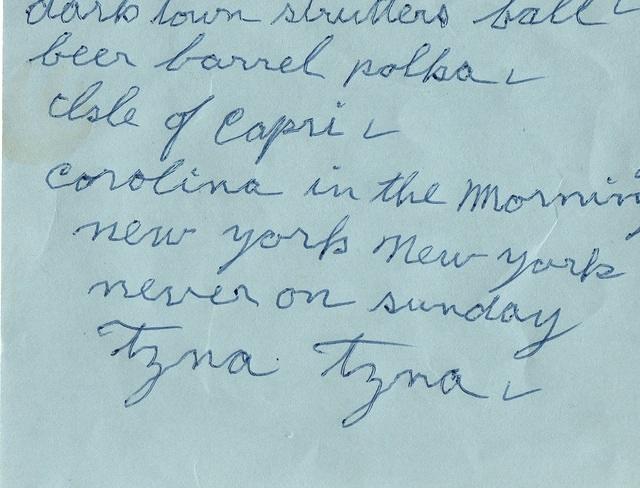 dark town strutters ball ✓
beer barrel polka ✓
Isle of Capri ✓
Carolina in the Morning
new york new york
never on sunday
Tzna Tzna ✓